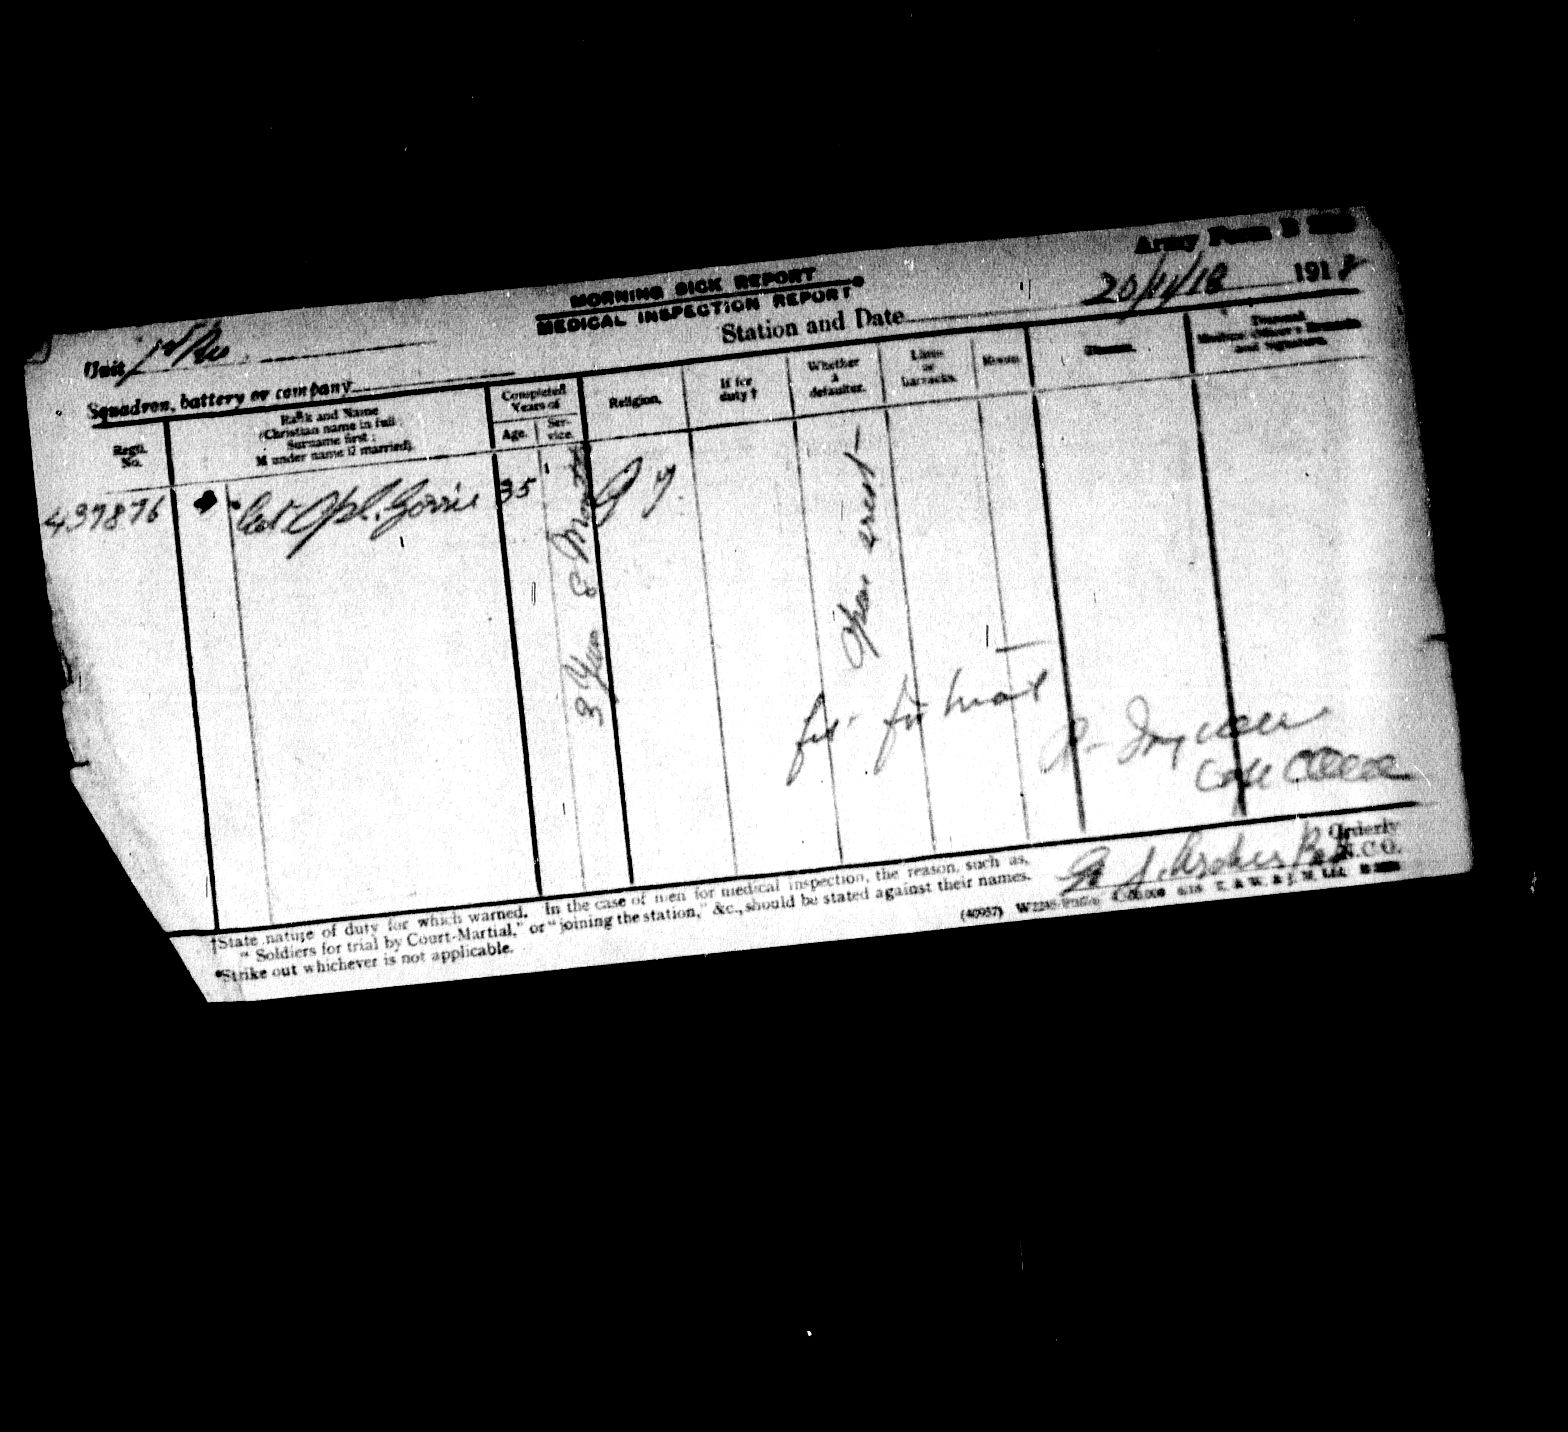 Army Form B
MORNING SICK REPORT
MEDICAL INSPECTION REPORT*
Unit
Station and Date 20/11/18 1918
Squadron, battery or company
Regtl. No.
Rank and Name
(Christian name in full
Surname first;
M under name if married).
Completed Years of
Age.
Service.
Religion.
If for duty †
Whether a defaulter.
Lines or barracks.
Room.
Disease.
Disposal,
Medical Officer's Remarks
and signature.
437876 Act Cpl. Gorrie 35 3 Years 8 Months
open arrest
fit for trial
Capt
Orderly
N.C.O.
†State nature of duty for which warned. In the case of men for medical inspection, the reason, such as,
" Soldiers for trial by Court-Martial," or "joining the station," &c., should be stated against their names.
*Strike out whichever is not applicable.